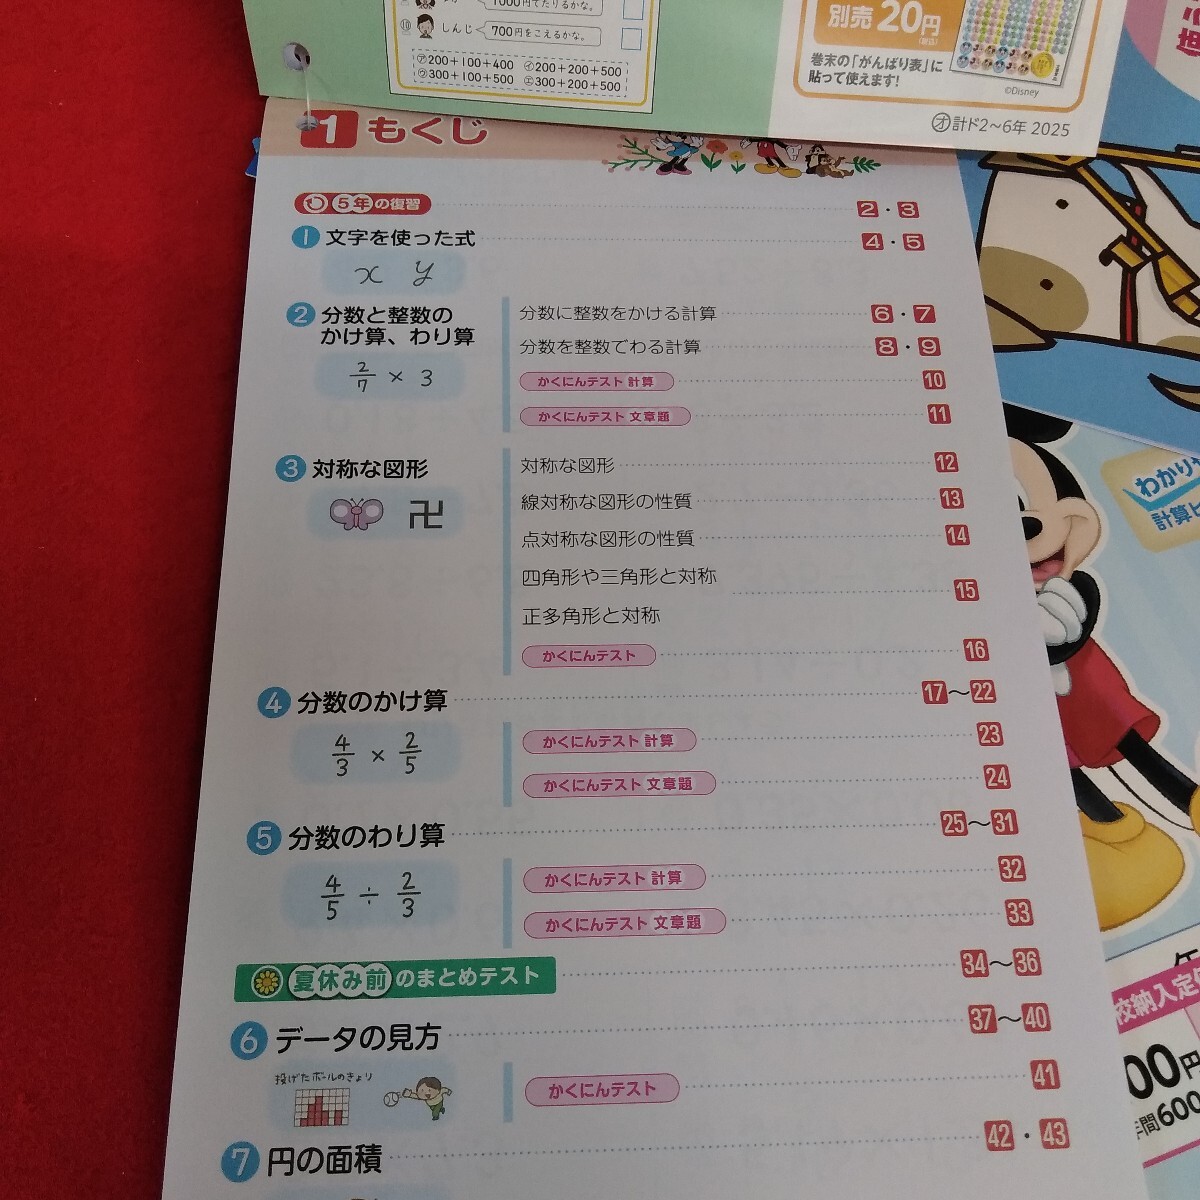 1000円でたりるかな。
⑩ しんじ 700円をこえるかな。
㋐200+100+400 ㋑200+200+500
㋒300+100+500 ㋓300+200+500
別売 20円
(税込)
巻末の「がんばり表」に
貼って使えます!
©Disney
㋔計ド2〜6年 2025
1 もくじ
5年の復習 2・3
1 文字を使った式 4・5
x y
2 分数と整数の
かけ算、わり算
2/7 × 3
分数に整数をかける計算 6・7
分数を整数でわる計算 8・9
かくにんテスト 計算 10
かくにんテスト 文章題 11
3 対称な図形
卍
対称な図形 12
線対称な図形の性質 13
点対称な図形の性質 14
四角形や三角形と対称
正多角形と対称 15
かくにんテスト 16
4 分数のかけ算 17〜22
4/3 × 2/5
かくにんテスト 計算 23
かくにんテスト 文章題 24
5 分数のわり算 25〜31
4/5 ÷ 2/3
かくにんテスト 計算 32
かくにんテスト 文章題 33
夏休み前のまとめテスト 34〜36
6 データの見方 37〜40
投げたボールのきょり
かくにんテスト 41
7 円の面積 42・43
わかりや
計算ビ
校納入定
00円
年間600